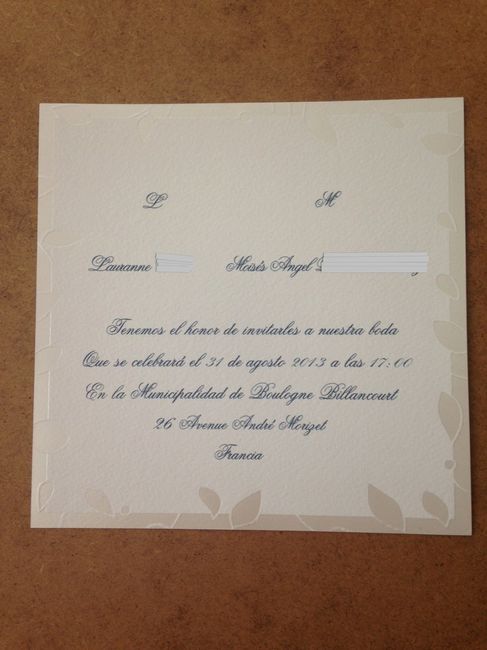 L M
Lauranne Moisés Angel
Tenemos el honor de invitarles a nuestra boda
Que se celebrará el 31 de agosto 2013 a las 17:00
En la Municipalidad de Boulogne Billancourt
26 Avenue André Morizet
Francia